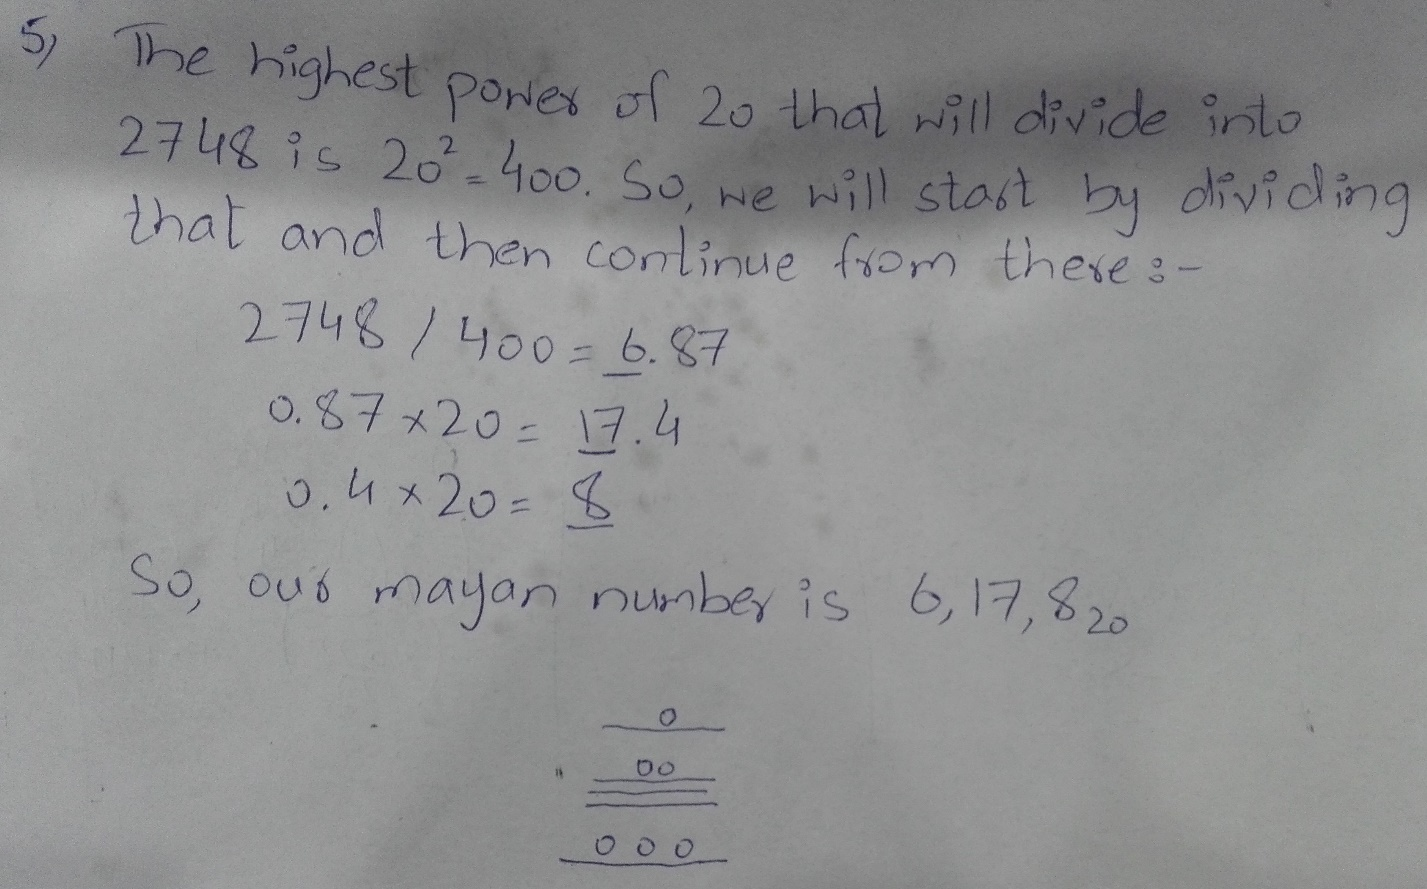 5) The highest power of 20 that will divide into
2748 is 20²=400. So, we will start by dividing
that and then continue from there:-
2748 / 400 = 6.87
0.87 x 20 = 17.4
0.4 x 20 = 8
So, our mayan number is 6,17,8₂₀